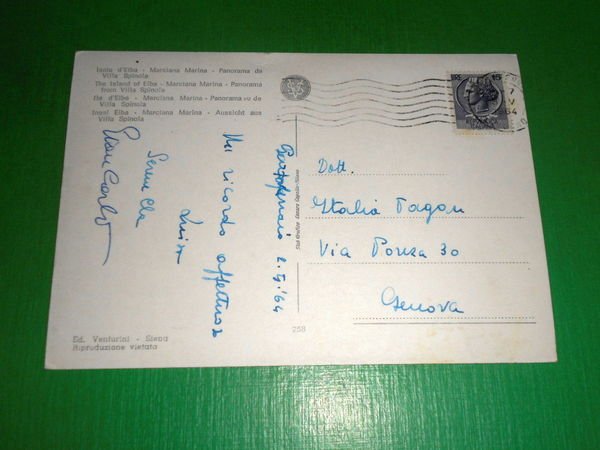 Isola d'Elba - Marciana Marina - Panorama da
Villa Spinola
The Island of Elba - Marciana Marina - Panorama
from Villa Spinola
Ile d'Elba - Marciana Marina - Panorama vu de
Villa Spinola
Insel Elba - Marciana Marina - Aussicht aus
Villa Spinola
2.5.'64
Un ricordo affettuoso
Luisa
Gian Carlo
Dott.
Italia Pagan
Via Ponza 30
Genova
258
Ed. Venturini - Siena
Riproduzione vietata